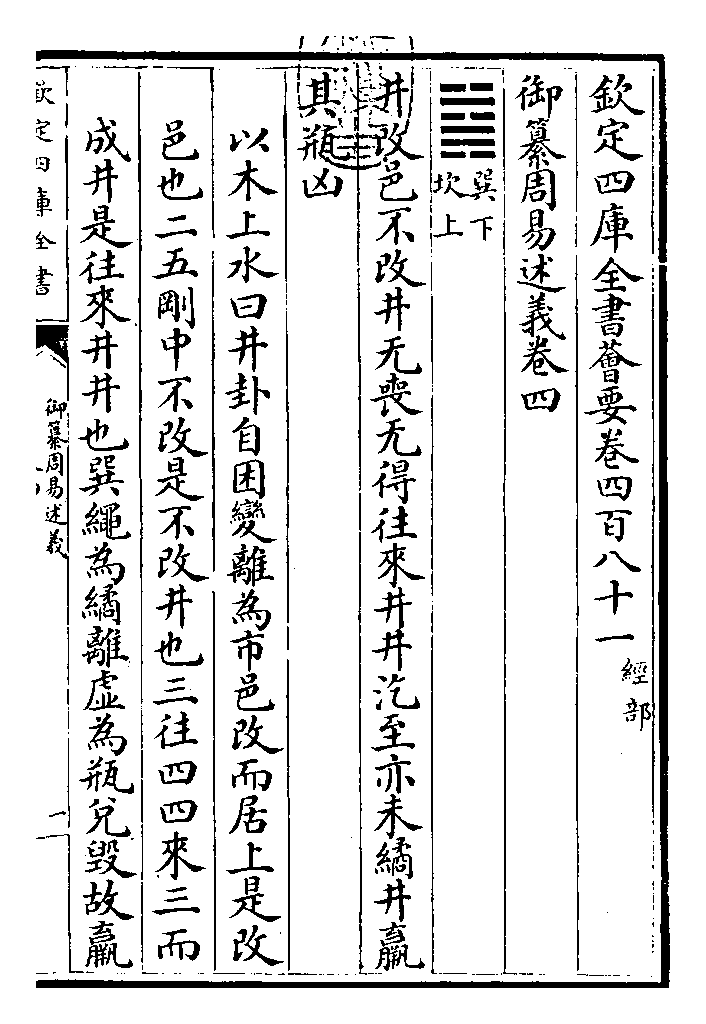 欽定四庫全書薈要卷四百八十一 經部
御纂周易述義卷四
巽下
坎上
井改邑不改井无喪无得往來井井汔至亦未繘井羸
其瓶凶
以木上水曰井卦自困變離為市邑改而居上是改
邑也二五剛中不改是不改井也三往四四來三而
成井是往來井井也巽繩為繘離虛為瓶兌毀故羸
欽定四庫全書
御纂周易述義
一